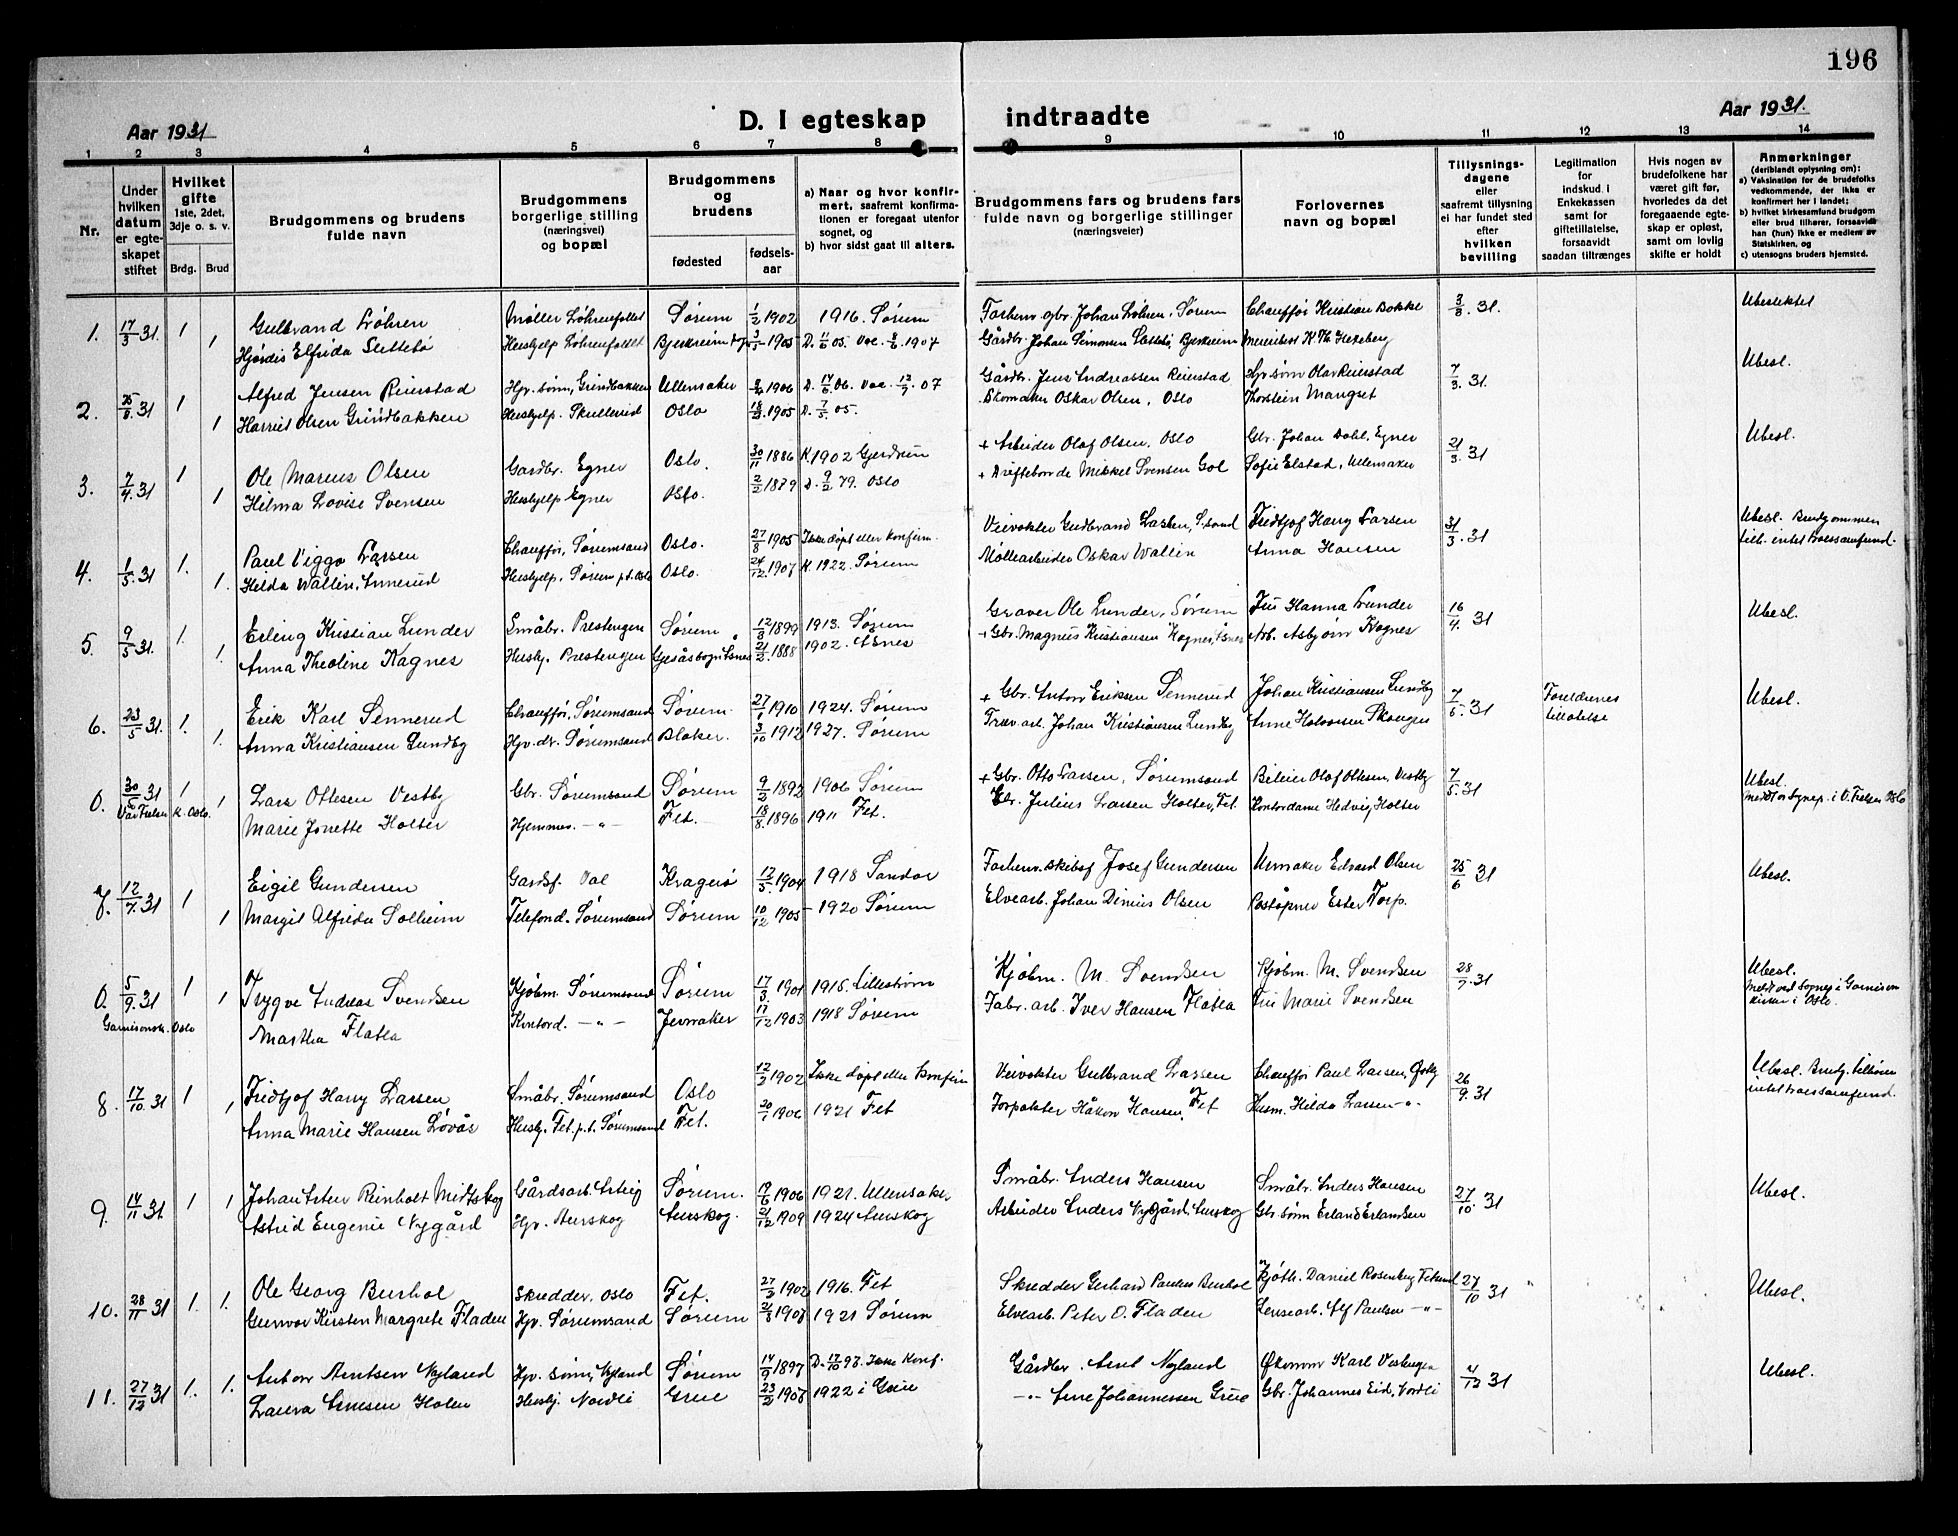 196
Aar 1931
D. I egteskap indtraadte
Aar 1931.
1 2 3 4 5 6 7 8 9 10 11 12 13 14
Nr.
Under hvilken datum er egteskapet stiftet
Hvilket gifte 1ste, 2det, 3dje o. s. v.
Brdg. Brud
Brudgommens og brudens fulde navn
Brudgommens borgerlige stilling (næringsvei) og bopæl
Brudgommens og brudens
fødested
fødselsaar
a) Naar og hvor konfirmert, saafremt konfirmationen er foregaat utenfor sognet, og
b) hvor sidst gaat til alters.
Brudgommens fars og brudens fars fulde navn og borgerlige stillinger (næringsveier)
Forlovernes navn og bopæl
Tillysningsdagene eller saafremt tillysning ei har fundet sted efter hvilken bevilling
Legitimation for indskud i Enkekassen samt for giftetillatelse, forsaavidt saadan tiltrænges
Hvis nogen av brudefolkene har været gift før, hvorledes da det foregaaende egteskap er opløst, samt om lovlig skifte er holdt
Anmerkninger (deriblandt oplysning om):
a) Vaksination for de brudefolks vedkommende, der ikke er konfirmert her i landet;
b) hvilket kirkesamfund brudgom eller brud tilhører, forsaavidt han (hun) ikke er medlem av Statskirken, og
c) utensogns bruders hjemsted.
1. 17/3 31. 1 Gulbrand Løhren Møller Løhrenfallet Sørum 1/2 1902 1916. Sørum Forhenv. gbr. Johan Løhren, Sørum Chauffør Kristian Bakke 3/3. 31. Ubeslektet
1 Hjørdis Elfrida Slettebø Hushjelp Løhrenfallet Bjerkreim 1905 1907 Gårdbr. Johan Simonsen Slettebø, Bjerkreim
2. 25/3. 31 1 Alfred Jensen Reierstad Hjv. sønn, Grindbakken Ullensaker 1906 D. 06. Vac. 07 Gårdbr. Jens Andreassen Reierstad Hjv. sønn Olav Reierstad 7/3. 31. Ubesl.
1 Harriet Olsen Grindbakken Hushjelp. Skullerud Oslo 1905 D. 7/5. 05. Skomaker Oskar Olsen, Oslo Thorstein Mangset
3. 7/4. 31 1 Ole Marius Olsen Gardbr. Egner Oslo. 30/11 1886 K. 1902 Gjerdrum + Arbeider Olaf Olsen, Oslo Gbr. Johan Dahl, Egner 21/3. 31 Ubesl.
1 Hilma Lovise Svensen Hushjelp Egner Oslo. 2/2 1879 D. 9/2. 79. Oslo Mikkel Svensen Gol Sofie Elstad, Ullensaker
4. 1/5. 31 1. Paul Viggo Larsen Chauffør, Sørumsand Oslo. 27/8 1905 Ikke døpt eller konfirm. Veivokter Gudbrand Larsen, S.sand Fridtjof Harry Larsen 31/3. 31 Ubesl. Brudgommen tilh. intet trossamfund.
1. Helda Wallin, Hushjelp, Sørum p.t. Oslo Oslo. 24/12. 1907 K. 1922. Sørum Møllearbeider Oskar Wallin Anna Hansen
5. 9/5 31. 1. Erling Kristian Lunder Småbr. Prestengen Sørum 12/3 1899 1913. Sørum Graver Ole Lunder, Sørum Fru Hanna Lunder 16/4. 31 Ubesl.
1. Anna Theoline Kagnes Hushj. Prestengen Gjesåssogn Åsnes 21/2. 1888 1902. Åsnes + Gbr. Magnus Kristiansen Kagnes, Åsnes Arb. Asbjørn Kagnes
6. 23/5 31. 1. Erik Karl Sennerud Chauffør, Sørumsand Sørum. 27/1 1910 1924. Sørum + Gbr. Anton Eriksen Sennerud Johan Kristiansen Lundby 7/5. 31 Foreldrenes tillatelse Ubesl.
1. Anna Kristiansen Lundby Hjv. dr. Sørumsand Blaker. 3/10 1912 1927. Sørum Trævarb. Johan Kristiansen Lundby Anne Halvorsen Skengen
0. 30/5 31 1 Lars Ottesen Vestby Gbr. Sørumsand Sørum 9/2 1892 1906 Sørum + Gbr. Otto Larsen, Sørumsand Bileier Olaf Ottesen, Vestby 7/5. 31 Ubesl.
Vår Frelsers K. Oslo. 1 Marie Jonette Holter Hjemmev. -"- Fet. 18/8. 1896 1911 Fet. Gbr. Julius Larsen Holter, Fet. Kontordame Hedvig Holter i V. Frelsers Oslo
7. 12/7. 31 1 Eigil Gundersen Gardsf. Val Kragerø 12/5. 1904 1918 Sandar Forhenv. skibsf Josef Gundersen Urmaker Edvard Olsen 25/6 31 Ubesl.
1 Margit Alfrida Solheim Telefond. Sørumsand Sørum 10/12 1905 1920 Sørum Elvearb. Johan Dinius Olsen Poståpner Ester Torp.
0. 5/9. 31 1 Trygve Andreas Svendsen Kjøbm. Sørumsand Sørum 17/3. 1901 1915. Lillestrøm Kjøbm. M. Svendsen Kjøbm. M. Svendsen 28/7. 31 Ubesl.
Garnisonsk. Oslo 1 Martha Flatla Kontord. -"- Jevnaker 17/12 1903 1918 Sørum Fabr. arb. Iver Hansen Flatla Fru Marie Svendsen Meldt ved Sognepr. i Garnisonskirken i Oslo.
8. 17/10. 31 1 Fridtjof Harry Larsen Småbr. Sørumsand Oslo 12/2 1902 Ikke døpt eller konfirm Veivokter Gulbrand Larsen Chauffør Paul Larsen, 26/9. 31 Ubesl. Brudg. tilhører intet trossamfund.
1 Anna Marie Hansen Løvås Hushj. Fet. p.t. Sørumsand Fet. 20/1 1906 1921 Fet Forpakter Håkon Hansen, Fet Husm. Hilda Larsen -"-
9. 14/11 31. 1 Johan Arten Reinholt Midtskog Gårdsarb. Asteig Sørum. 19/6 1906 1921. Ullensaker Småbr. Anders Hansen Småbr. Anders Hansen 27/10. 31 Ubesl.
1 Astrid Eugenie Nygård Hjv. Aurskog Aurskog. 21/12 1909 1924 Aurskog Arbeider Anders Nygård, Aurskog Gbr. sønn Erland Erlandsen
10. 28/11 31 1. Ole Georg Burhol Skredder, Oslo Fet. 27/3 1902 1916. Fet Skredder Gerhard Paulus Burhol Kjøtth. Daniel Rosenberg Fetsund 27/10 31 Ubesl.
1. Gunvor Kirsten Margrete Fladen Hjv. Sørumsand Sørum 1907 1921 Sørum Elvearb. Peter O. Fladen Lensearb. Alf Paulsen -"-
11. 27/12 31 1. Anton Arntsen Nyland Hjv. sønn, Nyland Sørum 14/9 1897 D. 17/10 97. Ikke konf. Gårdbr. Arnt Nyland Økonom Karl Vestengen 4/12 31 Ubesl.
1. Laura Arnesen Holen Hushj. Nordli Grue 23/2 1907 1922 i Grue -"- Arne Johannessen Grue Gbr. Johannes Eid, Nordli